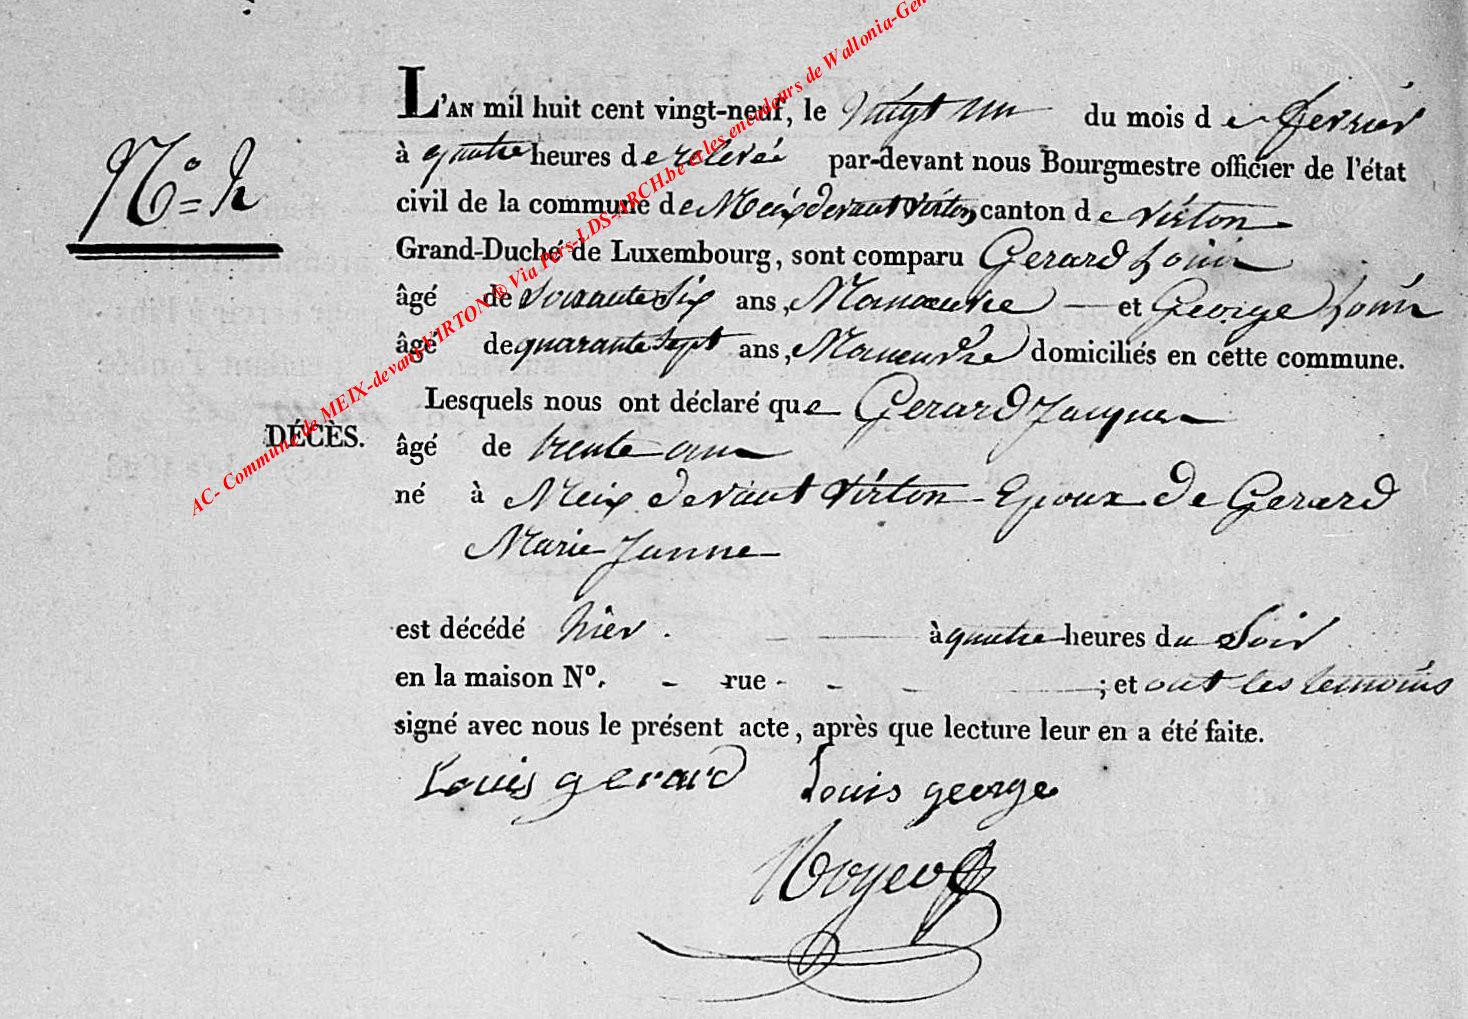 L'AN mil huit cent vingt-neuf, le vingt un du mois de fevrier
N.º = 4
à quatre heures de relevée par-devant nous Bourgmestre officier de l'état
civil de la commune de Meix devant virton canton de virton
Grand-Duché de Luxembourg, sont comparu Gerard Louis
âgé de soixante six ans, Manœuvre et George Louis
âgé de quarante sept ans, Maneuvre domiciliés en cette commune.
Lesquels nous ont déclaré que Gerard Jacques
DÉCÈS.
âgé de trente ans
né à Meix devant virton - Epoux de Gerard
Marie Janne
est décédé hier. à quatre heures du Soir
en la maison Nº. - rue - - - ; et ont les temoins
signé avec nous le présent acte, après que lecture leur en a été faite.
Louis gerard Louis george
AC- Commune de MEIX-devant-VIRTON ® Via Pers-LDS-ARCH.be et les encodeurs de Wallonia-Gen